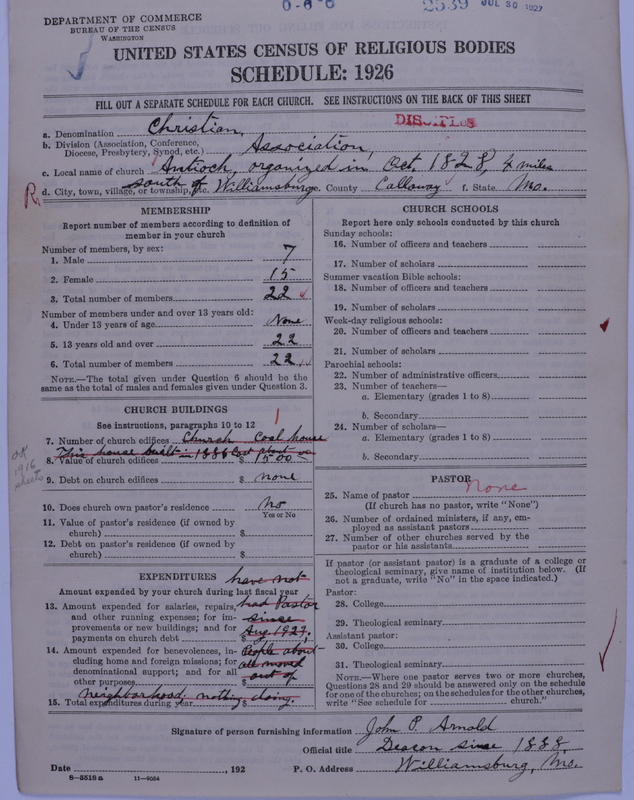 DEPARTMENT OF COMMERCE
BUREAU OF THE CENSUS
WASHINGTON
2539 JUL 30 1927
UNITED STATES CENSUS OF RELIGIOUS BODIES
SCHEDULE: 1926
FILL OUT A SEPARATE SCHEDULE FOR EACH CHURCH. SEE INSTRUCTIONS ON THE BACK OF THIS SHEET
a. Denomination Christian,
b. Division (Association, Conference, Diocese, Presbytery, Synod, etc.) Association,
c. Local name of church Antioch, organized in Oct. 1828, 4 miles
d. City, town, village, or township, etc. south of Williamsburg e. County Callaway f. State Mo.
R.
MEMBERSHIP
Report number of members according to definition of
member in your church
Number of members, by sex:
1. Male 7
2. Female 15
3. Total number of members 22
Number of members under and over 13 years old:
4. Under 13 years of age None
5. 13 years old and over 22
6. Total number of members 22
NOTE.—The total given under Question 6 should be the
same as the total of males and females given under Question 3.
CHURCH BUILDINGS
See instructions, paragraphs 10 to 12
1
7. Number of church edifices Church Coal house
This house built in 1886 Cost about
8. Value of church edifices $ 1500
OK
1916
9. Debt on church edifices $ none
10. Does church own pastor's residence No
Yes or No
11. Value of pastor's residence (if owned by
church) $
12. Debt on pastor's residence (if owned by
church) $
EXPENDITURES have not
Amount expended by your church during last fiscal year
13. Amount expended for salaries, repairs, had Pastor
and other running expenses; for im- since
provements or new buildings; and for
payments on church debt $ Aug 1921.
14. Amount expended for benevolences, in- People about
cluding home and foreign missions; for all moved
denominational support; and for all out of
other purposes $
neighborhood; nothing doing.
15. Total expenditures during year $
CHURCH SCHOOLS
Report here only schools conducted by this church
Sunday schools:
16. Number of officers and teachers
17. Number of scholars
Summer vacation Bible schools:
18. Number of officers and teachers
19. Number of scholars
Week-day religious schools:
20. Number of officers and teachers
21. Number of scholars
Parochial schools:
22. Number of administrative officers
23. Number of teachers—
a. Elementary (grades 1 to 8)
b. Secondary
24. Number of scholars—
a. Elementary (grades 1 to 8)
b. Secondary
PASTOR
25. Name of pastor None
(If church has no pastor, write "None")
26. Number of ordained ministers, if any, em-
ployed as assistant pastors
27. Number of other churches served by the
pastor or his assistants
If pastor (or assistant pastor) is a graduate of a college or
theological seminary, give name of institution below. (If
not a graduate, write "No" in the space indicated.)
Pastor:
28. College
29. Theological seminary
Assistant pastor:
30. College
31. Theological seminary
NOTE.—Where one pastor serves two or more churches,
Questions 28 and 29 should be answered only on the schedule
for one of the churches; on the schedules for the other churches,
write "See schedule for church."
Signature of person furnishing information John P. Arnold
Official title Deacon since 1888.
Date , 192 P. O. Address Williamsburg, Mo.
8—5518a 11—9034